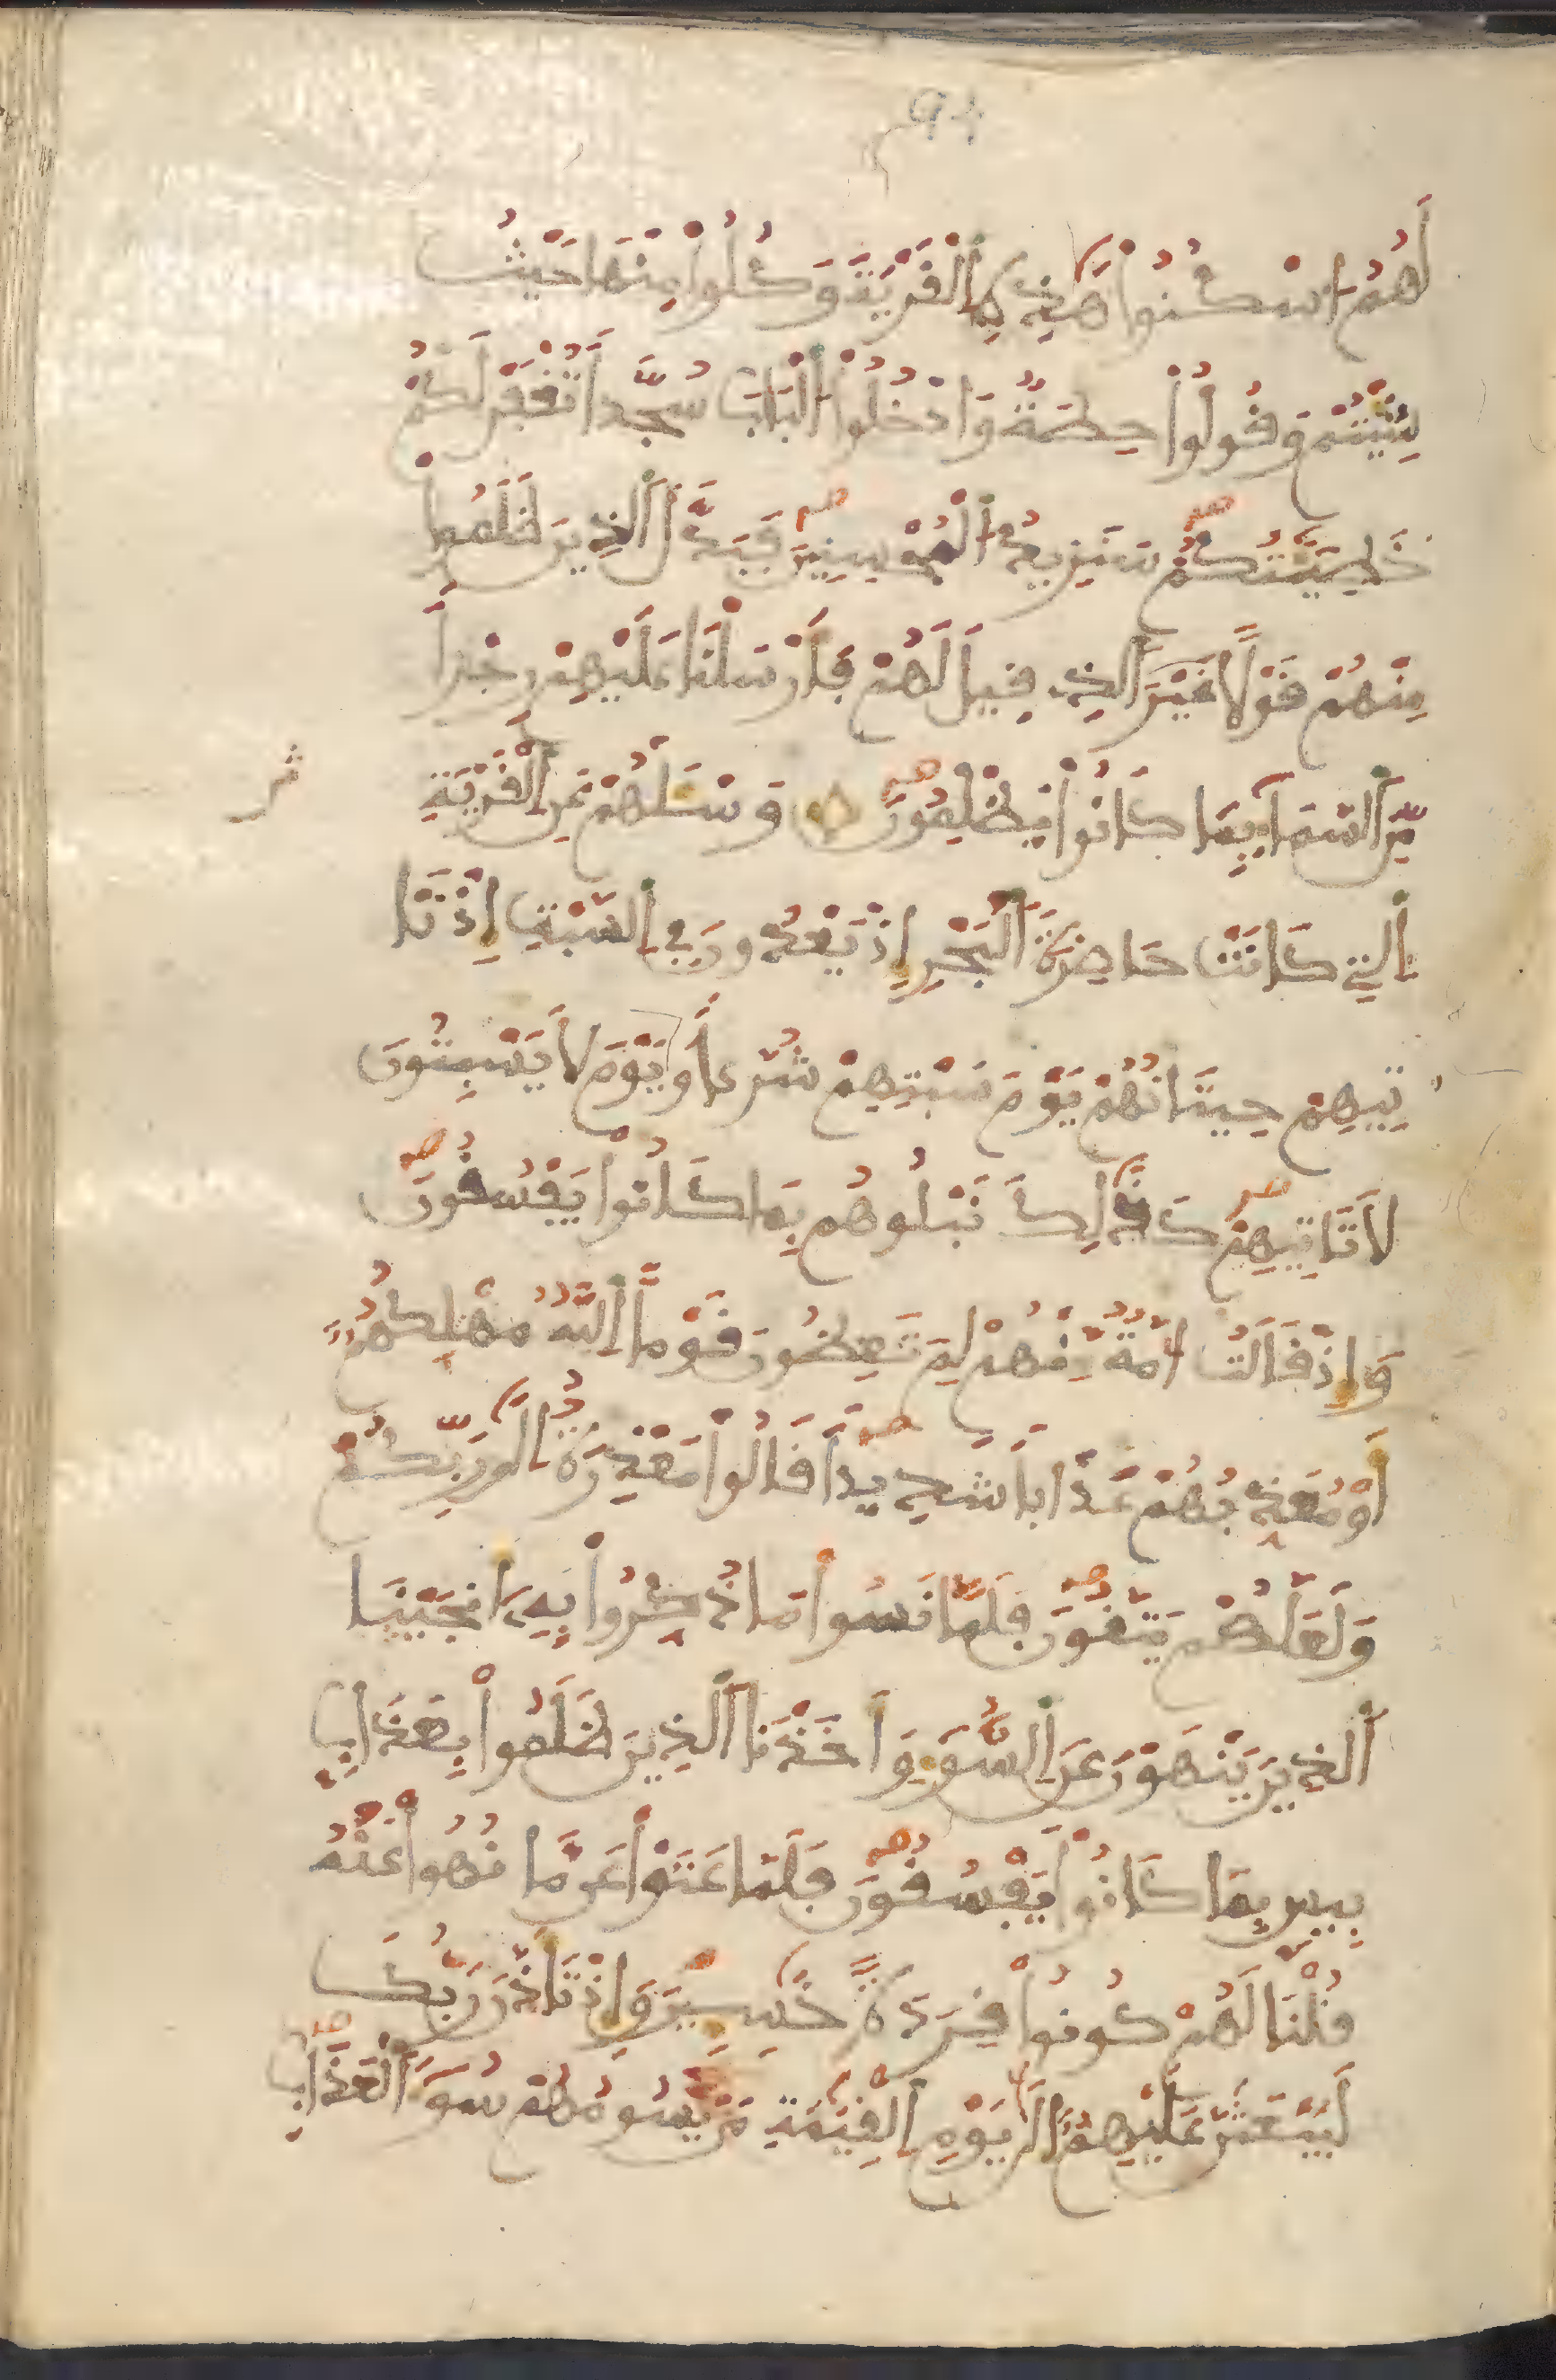 94
لَهُمُ اسْكُنُوا هَٰذِهِ اِ۬لْقَرْيَةَ وَكُلُوا مِنْهَا حَيْثُ
شِيتُمْ وَقُولُوا حِطَّةٌ وَادْخُلُوا اُ۬لْبَابَ سُجَّداً تُغْفَرْ لَكُمْ
خَطِيـَٰٔتُكُمْ سَنَزِيدُ اُ۬لْمُحْسِنِينَ فَبَدَّلَ اَ۬لذِينَ ظَلَمُوا
مِنْهُمْ قَوْلًا غَيْرَ اَ۬لذِے قِيلَ لَهُمْ فَأَرْسَلْنَا عَلَيْهِمْ رِجْزاً
مِّنَ اَ۬لسَّمَآءِ بِمَا كَانُوا يَظْلِمُونَ وَسْـَٔلْهُمْ عَنِ اِ۬لْقَرْيَةِ
ثمر
اِ۬لتِے كَانَتْ حَاضِرَةَ اَ۬لْبَحْرِ إِذْ يَعْدُونَ فِے اِ۬لسَّبْتِ إِذْ تَا
تِيهِمْ حِيتَانُهُمْ يَوْمَ سَبْتِهِمْ شُرَّعاً وَيَوْمَ لَا يَسْبِتُونَ
لَا تَاتِيهِمْ كَذَٰلِكَ نَبْلُوهُم بِمَا كَانُوا يَفْسُقُونَ
وَإِذْ قَالَتُ امَّةٌ مِّنْهُمْ لِمَ تَعِظُونَ قَوْماً اِ۬للَّهُ مُهْلِكُهُمُۥٓ
أَوْ مُعَذِّبُهُمْ عَذَاباً شَدِيداً قَالُوا مَعْذِرَةٌ اِلَىٰ رَبِّكُمْ
وَلَعَلَّهُمْ يَتَّقُونَ فَلَمَّا نَسُوا مَا ذُكِّرُوا بِهِۦٓ أَنجَيْنَا
اَ۬لذِينَ يَنْهَوْنَ عَنِ اِ۬لسُّوٓءِ وَأَخَذْنَا اَ۬لذِينَ ظَلَمُوا بِعَذَابٍ
بِيسٍ بِمَا كَانُوا يَفْسُقُونَ فَلَمَّا عَتَوْا عَن مَّا نُهُوا عَنْهُ
قُلْنَا لَهُمْ كُونُوا قِرَدَةً خَٰسِـِٕينَ وَإِذْ تَأَذَّنَ رَبُّكَ
لَيَبْعَثَنَّ عَلَيْهِمُۥٓ إِلَىٰ يَوْمِ اِ۬لْقِيَٰمَةِ مَنْ يَّسُومُهُمْ سُوٓءَ اَ۬لْعَذَابِ